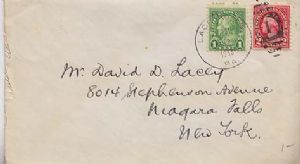 Mr. David D. Lacey
8014 Stephenson Avenue
Niagara Falls
New York.